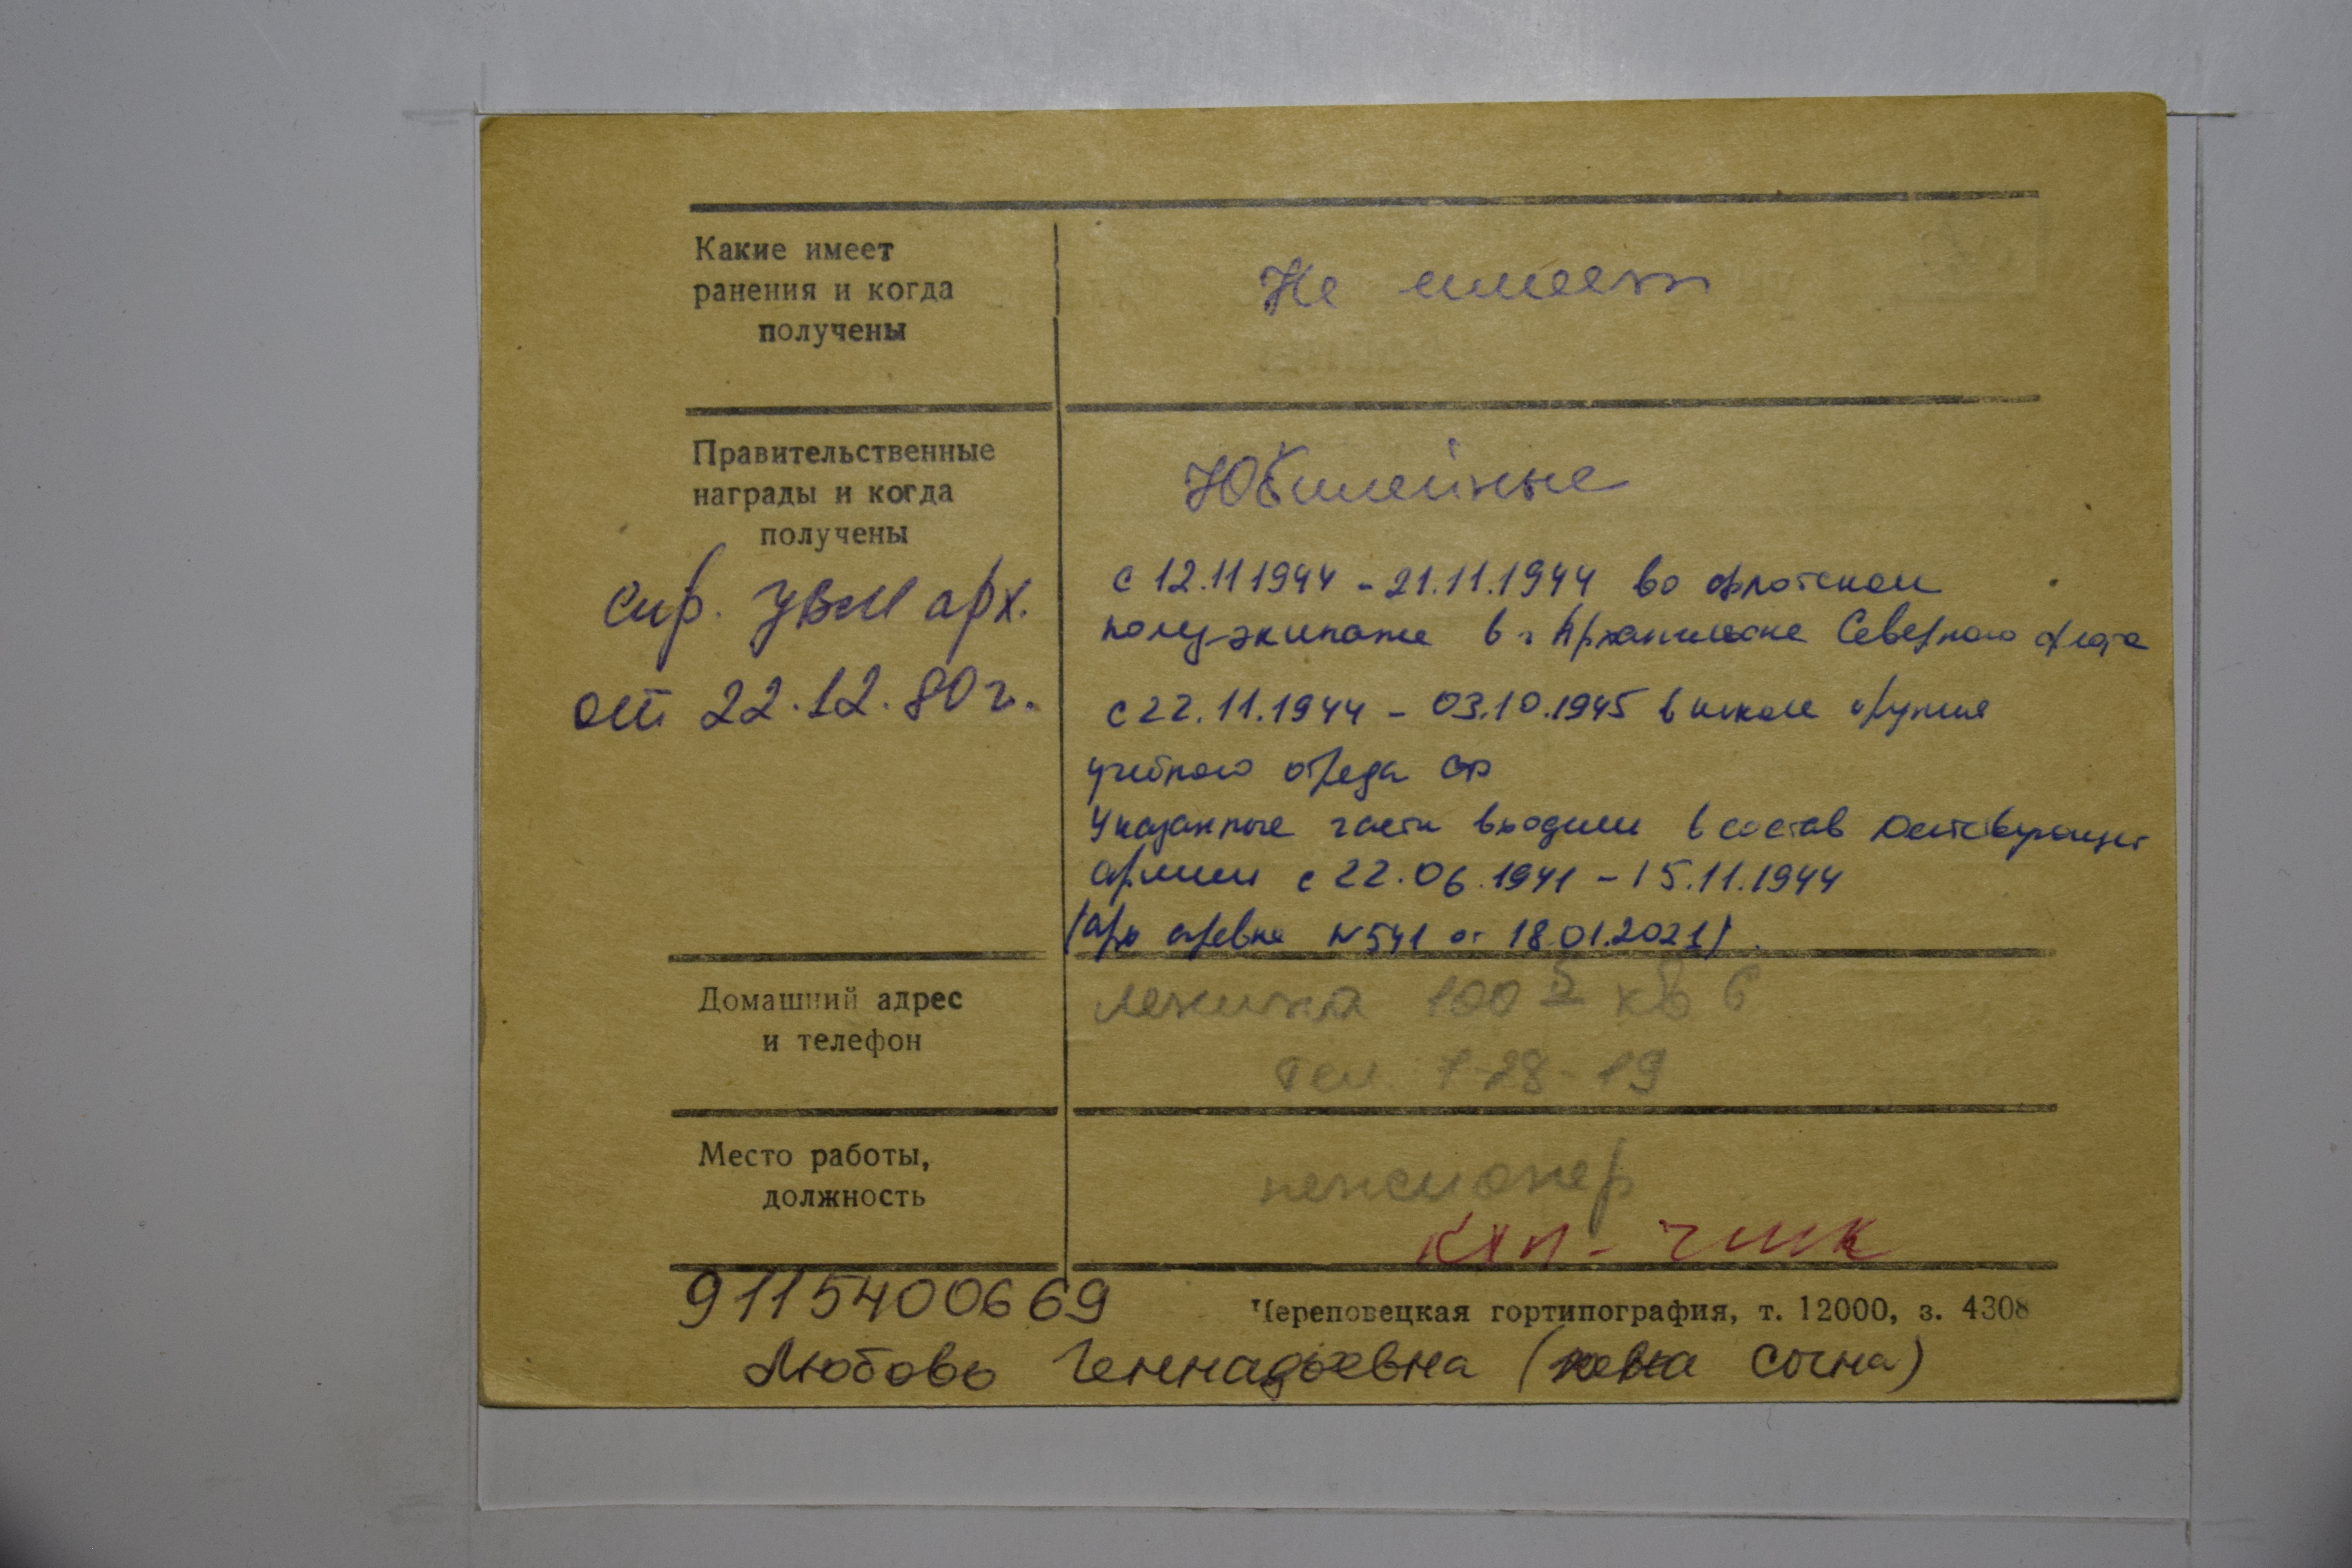 Какие имеет
ранения и когда
получены
Не имеет
Правительственные
награды и когда
получены
Юбилейные
спр. УВМ арх.
от 22.12.80 г.
с 12.11 1944 - 21.11.1944 во флотском
полуэкипаже в г Архангельске Северного флота
с 22.11.1944 - 03.10.1945 в школе оружия
учебного отряда СФ
Указанные части входили в состав Действующей
армии с 22.06.1941 - 15.11.1944
/арх справка N 541 от 18.01.2021/.
Домашний адрес
и телефон
Ленина 100 кв 6
тел. 7-28-19
Место работы,
должность
пенсионер
9115400669
Череповецкая гортипография, т. 12000, з. 4308
Любовь Геннадьевна (жена сына)